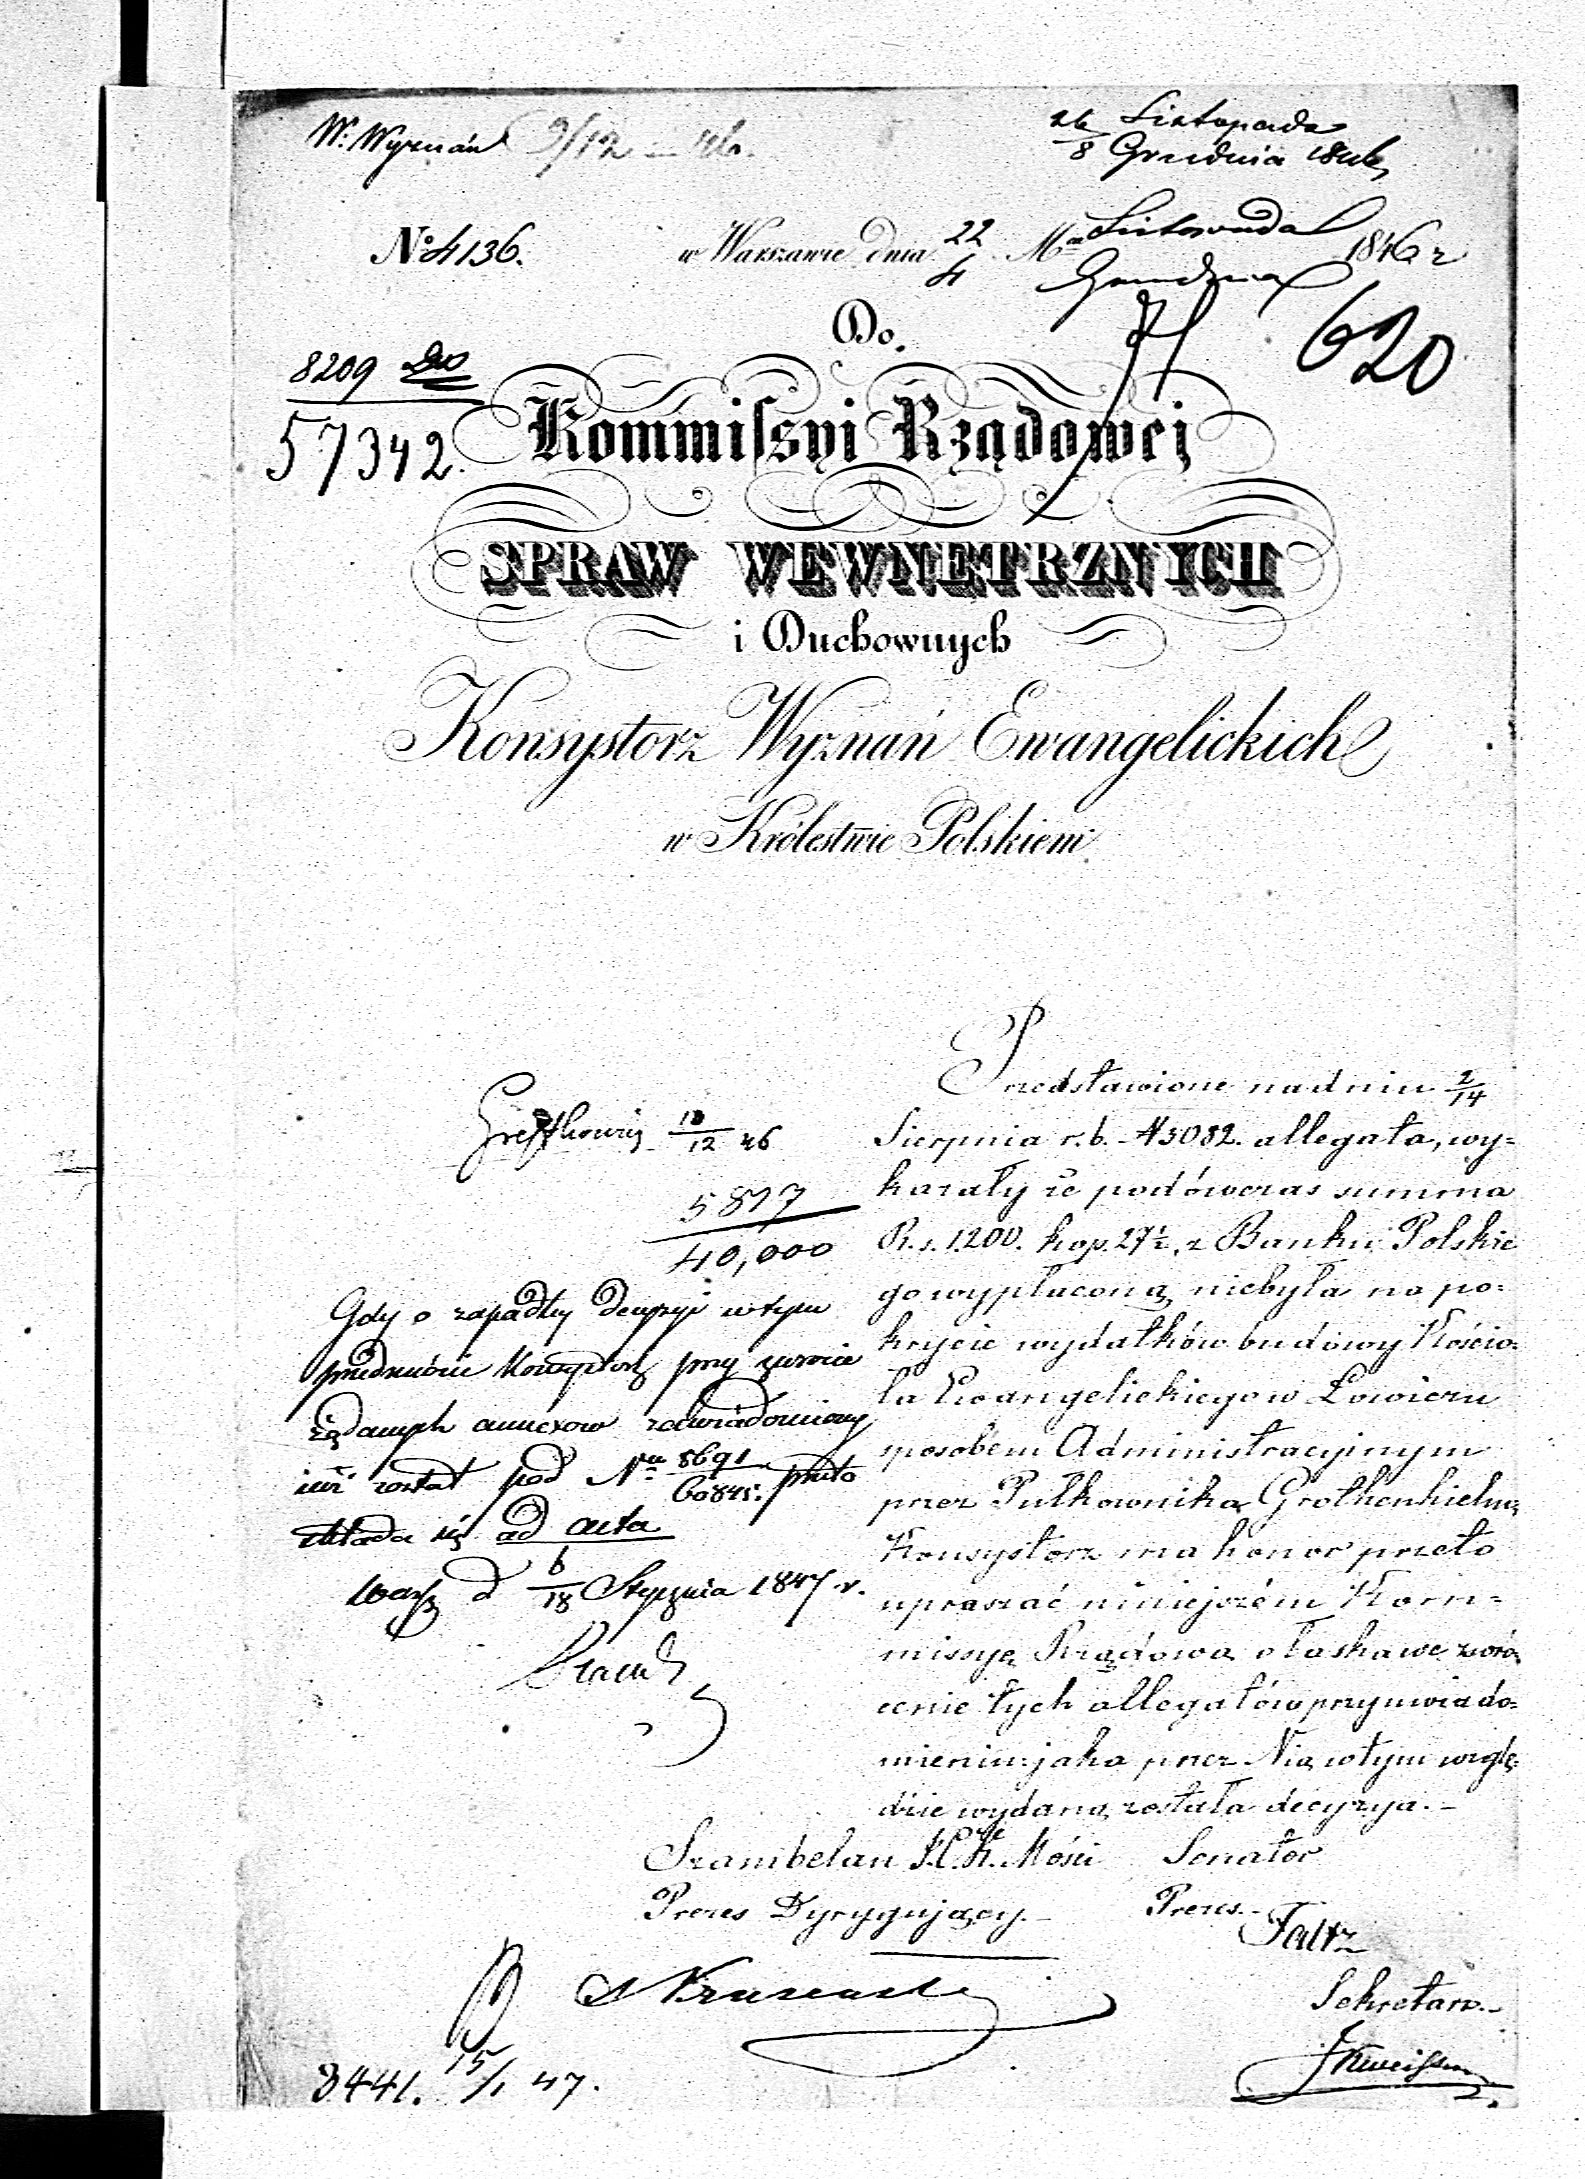 Wł. Wyznań 9/12 46.
26/8 Listopada
Grudnia 1846
No 4136. w Warszawie dnia 22/4 Mca Listopada
Grudnia 1846 r
Do.
620
8209
57342.
Kommissyi Rządowej
SPRAW WEWNĘTRZNYCH
i Duchownych
Konsystorz Wyznań Ewangelickich
w Królestwie Polskiem.
Przedstawione nadniu 2/14
Sierpnia r.b. N 5082. allegata, wy=
kazały że podówczas summa
R.s. 1200. kop. 27½, z Banku Polskie
go wypłaconą niebyła na po=
krycie wydatków budowy Kościo=
ła Ewangelickiego w Łowiczu
sposobem Administracyjnym
przez Pułkownika Grothenhielm,
Konsystorz ma honor przeto
upraszać niniejszém Kom=
missyę Rządową o łaskawe zwró=
cenie tych allegatów przy uwiado=
mieniu jaka przez Nią w tym wzglę=
dzie wydaną została decyzya.—
10/12 46
5877
40,000
Gdy o zapadłej decyzyi w tym
przedmiocie Konsystorz przy zwrocie
żądanych annexow zawiadomiony
już został pod Nrm 8691/60845. przeto
składa się ad acta
Warsz d 6/18 Stycznia 1847 r.
Szambelan J.C.K. Mości Senator
Prezes Dyrygujący.— Prezes.—
Sekretarz.—
8441. 15/1 47.